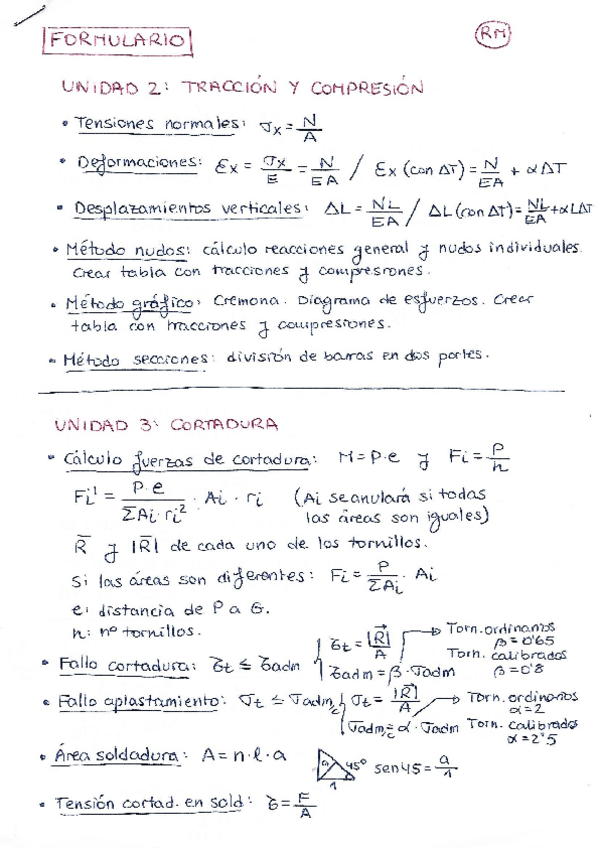 FORMULARIO
RM
UNIDAD 2: TRACCIÓN Y COMPRESIÓN
• Tensiones normales: σx = N/A
• Deformaciones: Ɛx = σx/E = N/EA / Ɛx (con ΔT) = N/EA + αΔT
• Desplazamientos verticales: ΔL = NL/EA / ΔL (con ΔT) = NL/EA + αLΔT
• Método nudos: cálculo reacciones general y nudos individuales.
Crear tabla con tracciones y compresiones.
• Método gráfico: Cremona. Diagrama de esfuerzos. Crear
tabla con tracciones y compresiones.
• Método secciones: división de barras en dos partes.
UNIDAD 3: CORTADURA
• Cálculo fuerzas de cortadura: M = P·e y Fi = P/n
Fi' = P·e/ΣAi·ri² · Ai · ri (Ai se anulará si todas
las áreas son iguales)
R̄ y |R̄| de cada uno de los tornillos.
Si las áreas son diferentes: Fi = P/ΣAi · Ai
e: distancia de P a G.
n: nº tornillos.
• Fallo cortadura: τt ≤ τadm { τt = |R|/A
τadm = β·σadm
Torn. ordinarios
β = 0'65
Torn. calibrados
β = 0'8
• Fallo aplastamiento: σt ≤ σadm,c { σt = |R|/A
σadm,c = α·σadm
Torn. ordinarios
α = 2
Torn. calibrados
α = 2'5
• Área soldadura: A = n·l·a
a 45° 1
sen45 = a/1
• Tensión cortad. en sold: τ = F/A